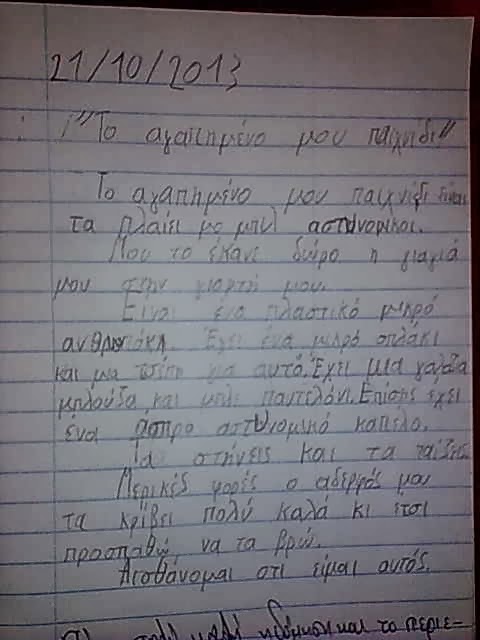 21/10/2013
"Το αγαπημένο μου παιχνίδι"
Το αγαπημένο μου παιχνίδι είναι
τα πλαίει μο μπιλ αστυνομικοι.
Μου το έκανε δώρο η γιαγιά
μου στην γιορτή μου.
Είναι ένα πλαστικό μικρό
ανθρωπάκι. Έχει ένα μικρό οπλάκι
και μια τσέπη για αυτό. Έχει μια γαλάζια
μπλούζα και μπλε παντελόνι. Επίσης έχει
ένα άσπρο αστυνομικό καπέλο.
Τα στήνεις και τα παίζεις.
Μερικές φορές ο αδερφός μου
τα κρίβει πολύ καλά κι έτσι
προσπαθώ να τα βρω.
Αισθάνομαι οτι είμαι αυτός.
και το περιε-